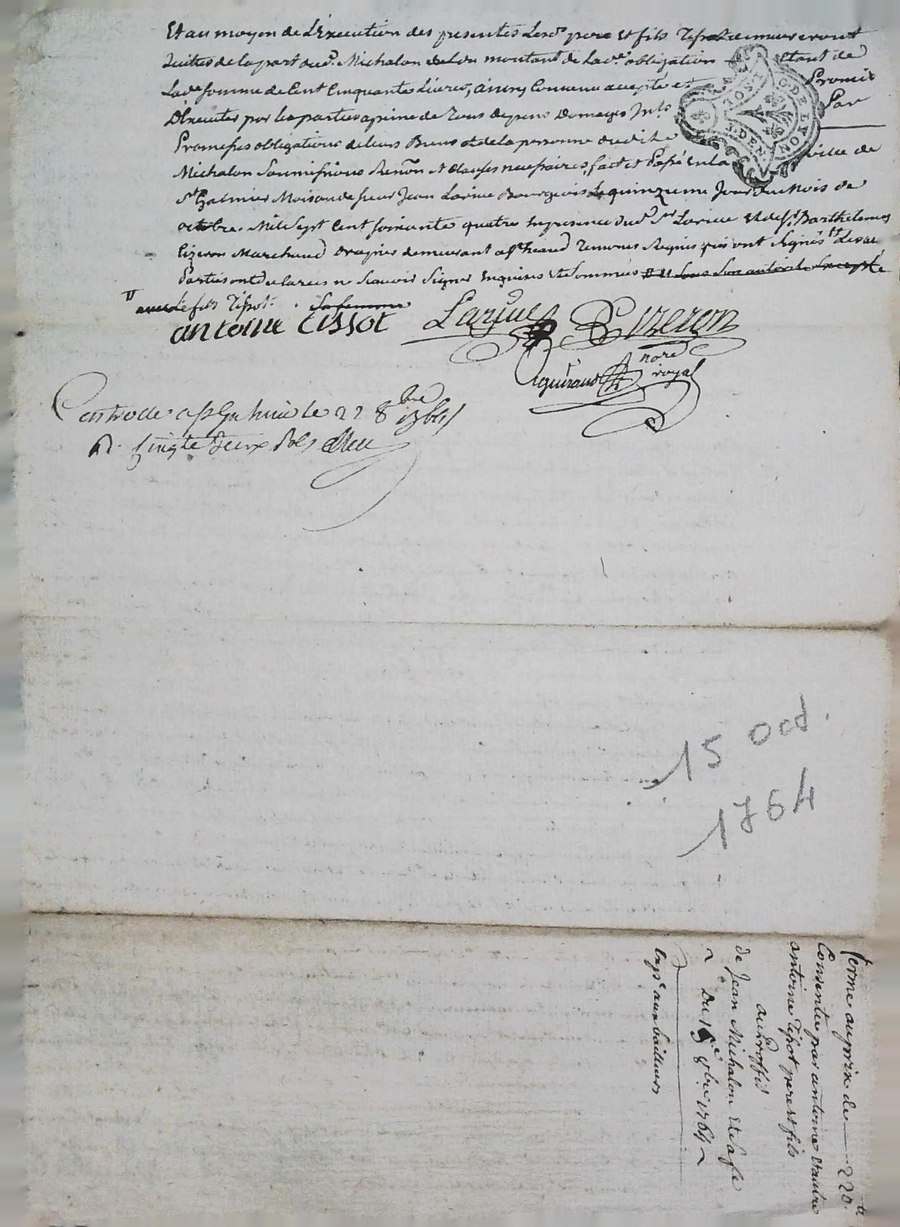 Et au moyen de l'Execution des presentes Lesd. pere et fils Tissot demeureront
quittes de la part dud. Michalon
de lad. obligation
tant de
Lad. somme de Cent Cinquante Livres, ainsy Convenu accepté et
Promis
D'Executer par les parties a peine de Tous depens Domages Ints.
Par
Promesses obligations de leurs Biens et de la personne dudit
Michalon Soumissions Renon et Clauses necessaires, fait et Passé en la
ville de
St Galmier Maison de sieur Jean Larüe Bourgeois Le quinzieme Jour du Mois de
octobre Mil Sept Cent soixante quatre en presence dud. Sr. Larüe Et de Sr. Barthelemy
Cizeron Marchand
demeurant
Temoins Requis qui ont Signés et Lesd.
Parties ont declarées ne Scavoir Signer Enquises Et Sommées
le fils Tissot. sa femme
antoine tissot Larüe B Cizeron
nore
royal
G. DE LYON
2 SOLS
8. DEN.
Controllé a St Galmier le 22 8bre 1764
R. Vingte deux sols
15 Oct.
1764
ferme au prix de 220
Consentie par antoine Et autre
antoine Tissot pere et fils
au proffit
de Jean Michalon Et Sa fe
Du 15e 8bre 1764
Exp. aux bailleurs